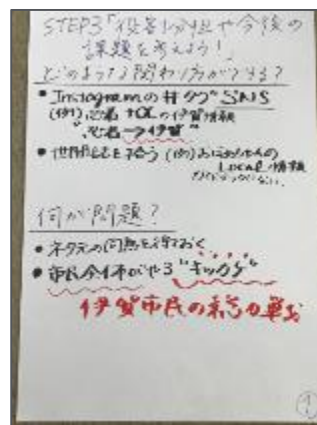 STEP3「役割分担や今後の
課題を考えよう!」
どのような関わり方ができる?
• Instagramの#タグ SNS
(例) 忍者 +αの伊賀情報
"忍者→伊賀"
• 世間話を拾う (例) おばあちゃんの
Localな情報
何が問題?
• ネタ元の同意を得ておく
• 市民全体がやる "キッカケ"
伊賀市民の総力戦
1